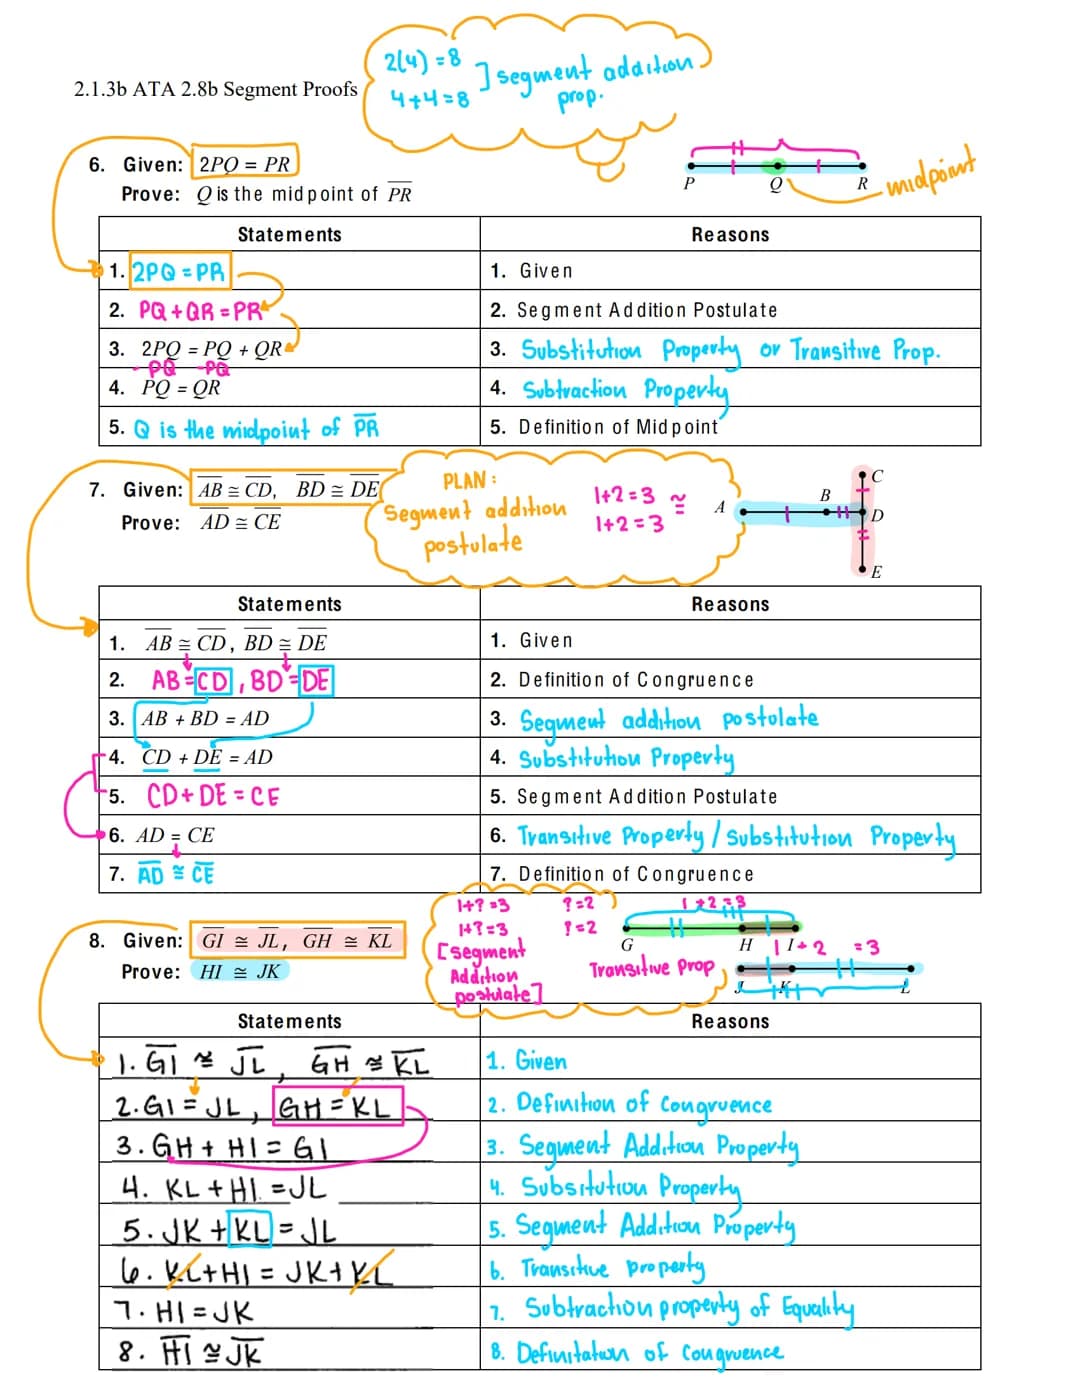 2(4) = 8
4+4=8
] segment addition
prop.
2.1.3b ATA 2.8b Segment Proofs
6. Given: 2PQ = PR
Prove: Q is the midpoint of PR
P Q R
midpoint
Statements Reasons
1. 2PQ = PR 1. Given
2. PQ + QR = PR 2. Segment Addition Postulate
3. 2PQ = PQ + QR 3. Substitution Property or Transitive Prop.
- PQ -PQ
4. PQ = QR 4. Subtraction Property
5. Q is the midpoint of PR 5. Definition of Midpoint
7. Given: AB ≅ CD, BD ≅ DE
Prove: AD ≅ CE
PLAN:
Segment addition
postulate
1+2=3 ≅
1+2=3
A B C D E
Statements Reasons
1. AB ≅ CD, BD ≅ DE 1. Given
2. AB=CD, BD=DE 2. Definition of Congruence
3. AB + BD = AD 3. Segment addition postulate
4. CD + DE = AD 4. Substitution Property
5. CD+DE = CE 5. Segment Addition Postulate
6. AD = CE 6. Transitive Property / Substitution Property
7. AD ≅ CE 7. Definition of Congruence
8. Given: GI ≅ JL, GH ≅ KL
Prove: HI ≅ JK
1+?=3 ?=2
1+?=3 ?=2
[segment
Addition
postulate]
Transitive Prop
1+2=3
G H I
1+2=3
J K L
Statements Reasons
1. GI ≅ JL, GH ≅ KL 1. Given
2. GI = JL, GH = KL 2. Definition of Congruence
3. GH + HI = GI 3. Segment Addition Property
4. KL + HI = JL 4. Subsitution Property
5. JK + KL = JL 5. Segment Addition Property
6. KL+HI = JK+KL 6. Transitive property
7. HI = JK 7. Subtraction property of Equality
8. HI ≅ JK 8. Definitation of Congruence